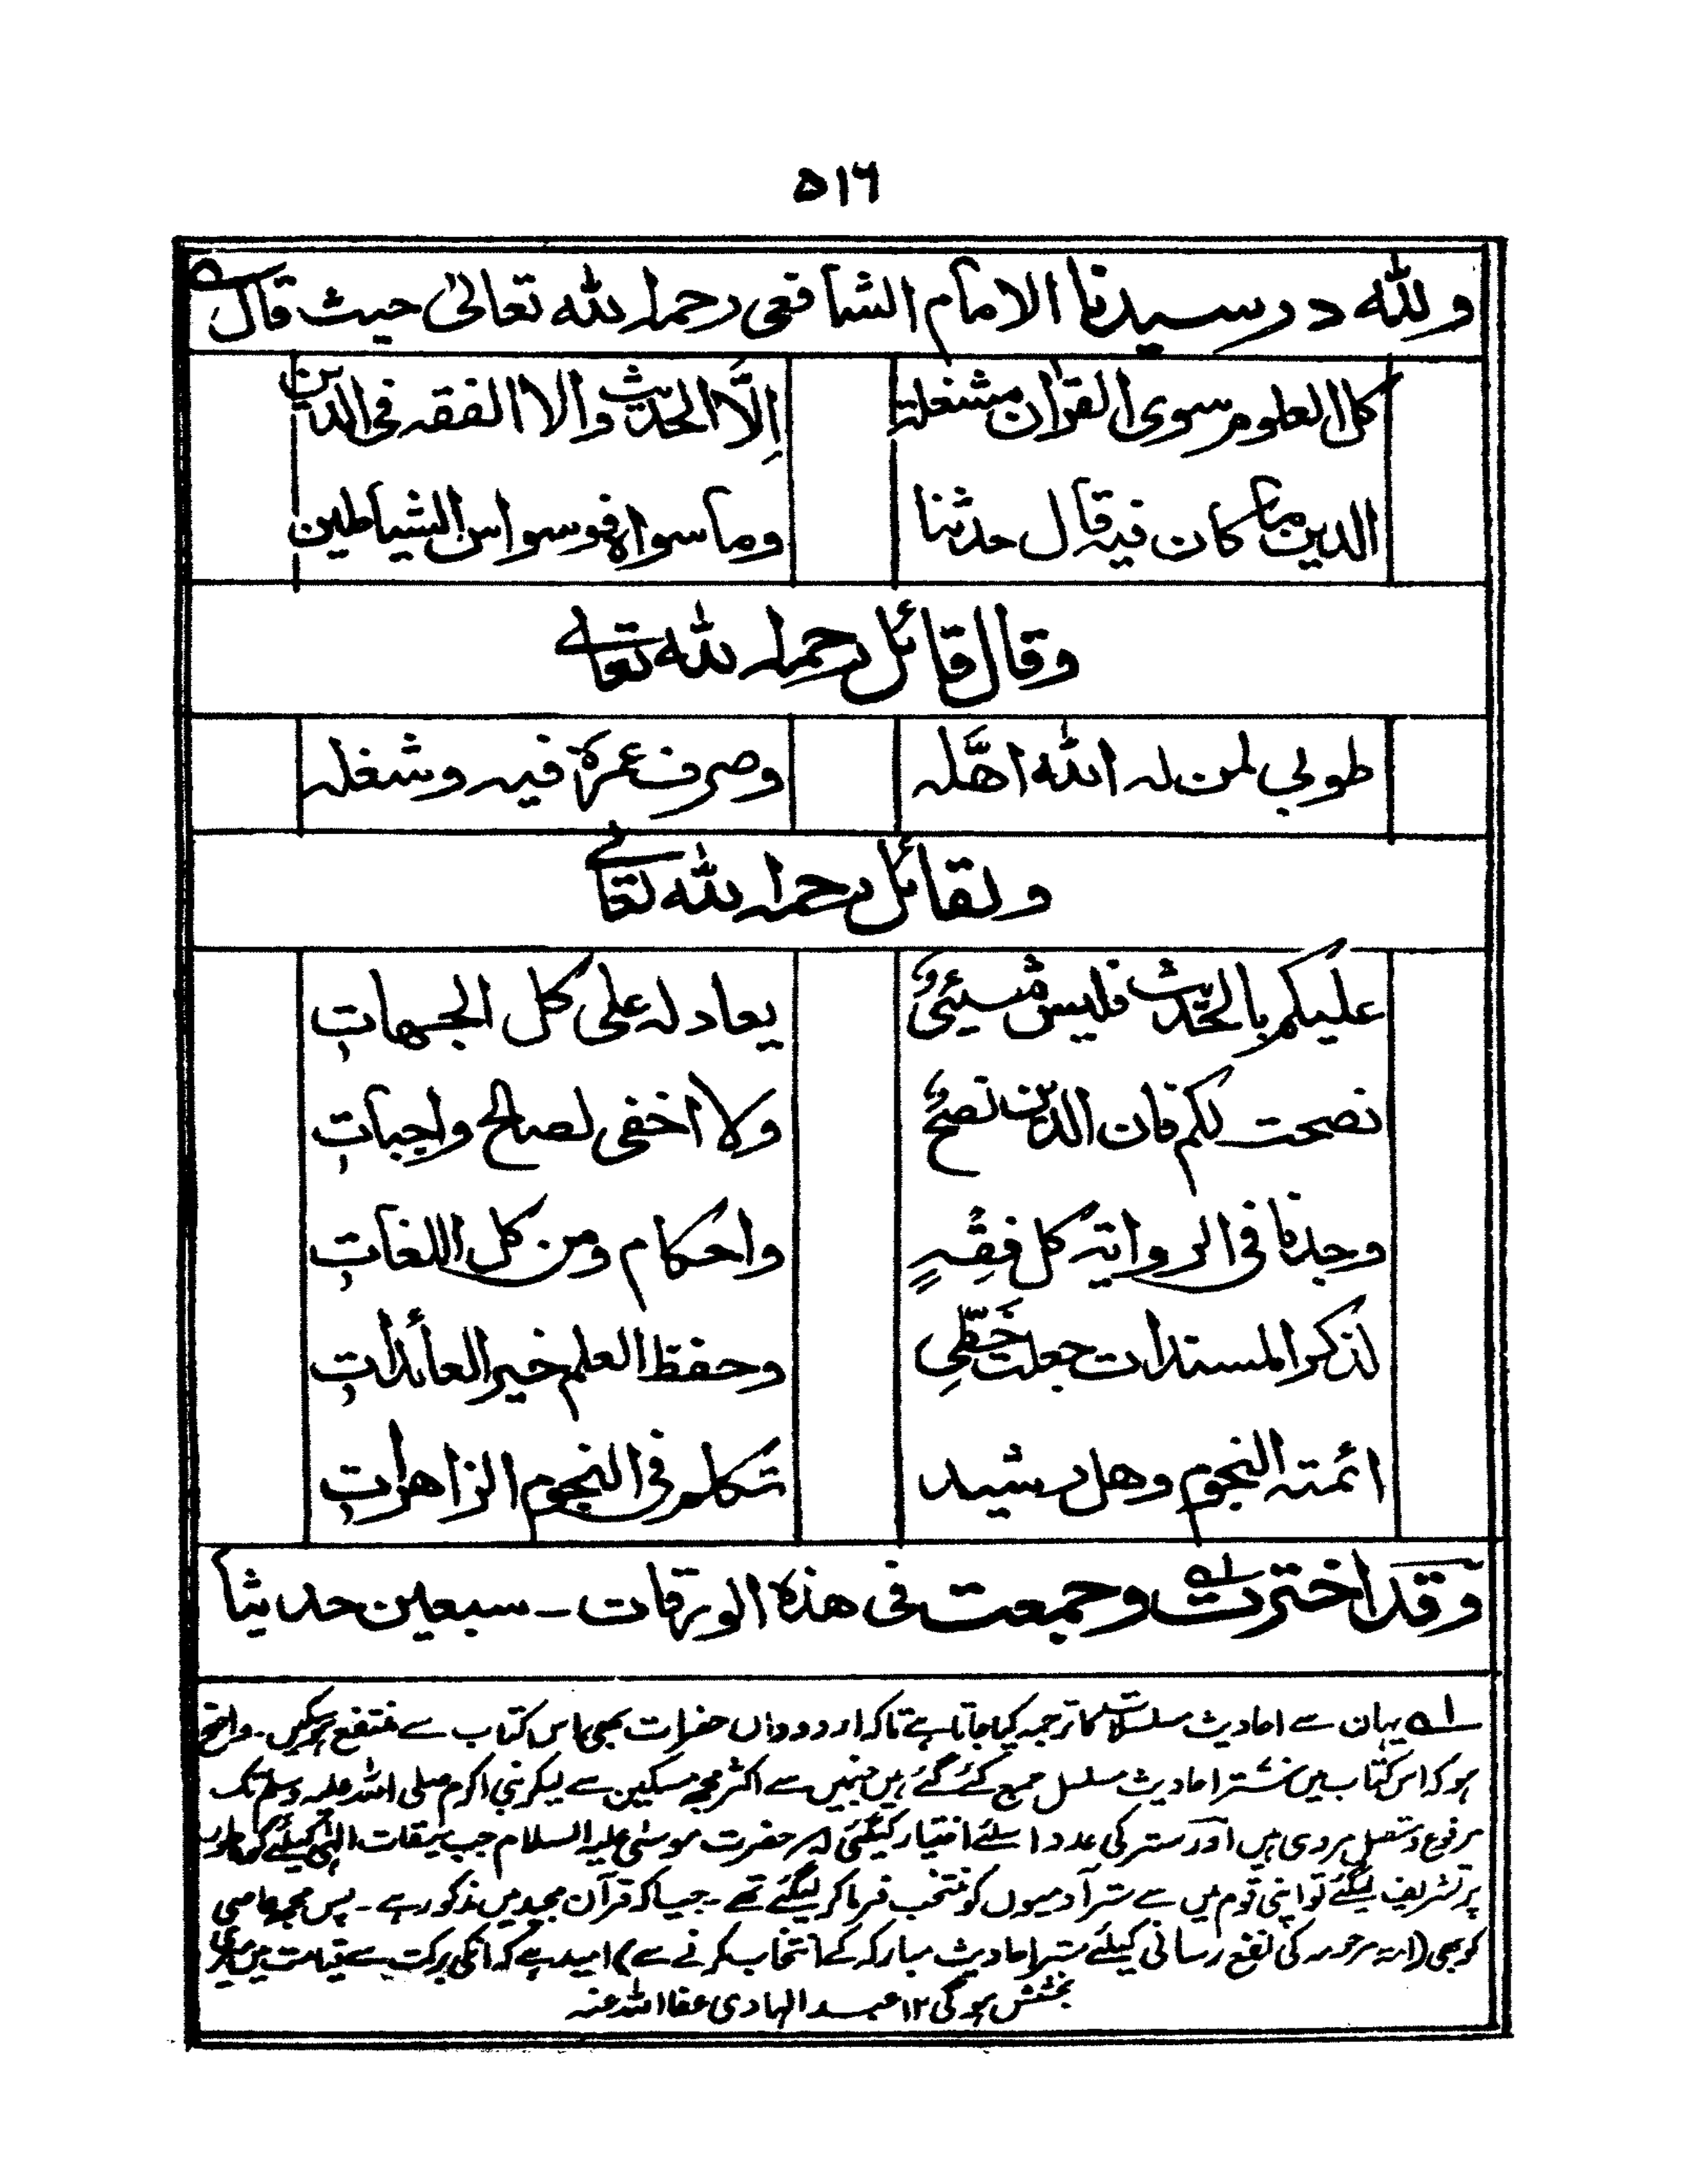 ۵۱۶
وللّٰه در سيدنا الامام الشافعى رحمه اللّٰه تعالىٰ حيث قال
كل العلوم سوى القرآن مشغلة اِلَّا الحديث والا الفقه فى الدين
الدين ما كان فيه قال حدثنا وما سواه فوسواس الشياطين
وقال قائل رحمه اللّٰه تعالے
طوبى لمن له اللّٰه اهَّله وصرف عمره فيه وشغله
ولقائل رحمه اللّٰه تعالے
عليكم بالحديث فليس شيئىٌ يعادله على كل الجهاتِ
نصحت لكم فان الدين نصحٌ ولا اخفى لصالح واجباتِ
وجدنا فى الرواية كل فقهٍ واحكام ومن كل اللغاتِ
لذكر المسندات جعلت حَظّىِ وحفظ العلم خير العائداتِ
ائمته النجوم وهل رشيد تكلم فى النجوم الزاهراتِ
وقد اخترت لـه وجمعت فى هذه الورقات ـ سبعين حديثا
لـه یہان سے احادیث مسلسلات کا ترجمہ کیا جاتا ہے تاکہ اردوداں حضرات بھی اس کتاب سے منتفع ہوسکیں۔ واضح
ہو کہ اس کتاب میں ستّر احادیث مسلسل جمع کئے گئے ہیں جنمیں سے اکثر مجھ مسکین سے لیکر نبی اکرم صلی اللّٰہ علیہ وسلم تک
مرفوع و متصل مروی ہیں اور ستر کی عدد اسلئے اختیار کیگئی کہ حضرت موسیٰ علیہ السلام جب میقات الٰہی کیلئے کوہ طور
پر تشریف لیگئے تو اپنی قوم میں سے ستر آدمیوں کو منتخب فرما کر لیگئے تھے ۔ جیسا کہ قرآن مجید میں مذکور ہے ۔ پس مجھ عاصی
کو بھی (امۃ مرحومہ کی نفع رسانی کیلئے ستر احادیث مبارکہ کے انتخاب کرنے سے) امید ہے کہ انکی برکت سے قیامت میں میری
بخشش ہوگی ۱۲ عبد الہادی عفا اللّٰہ عنہ